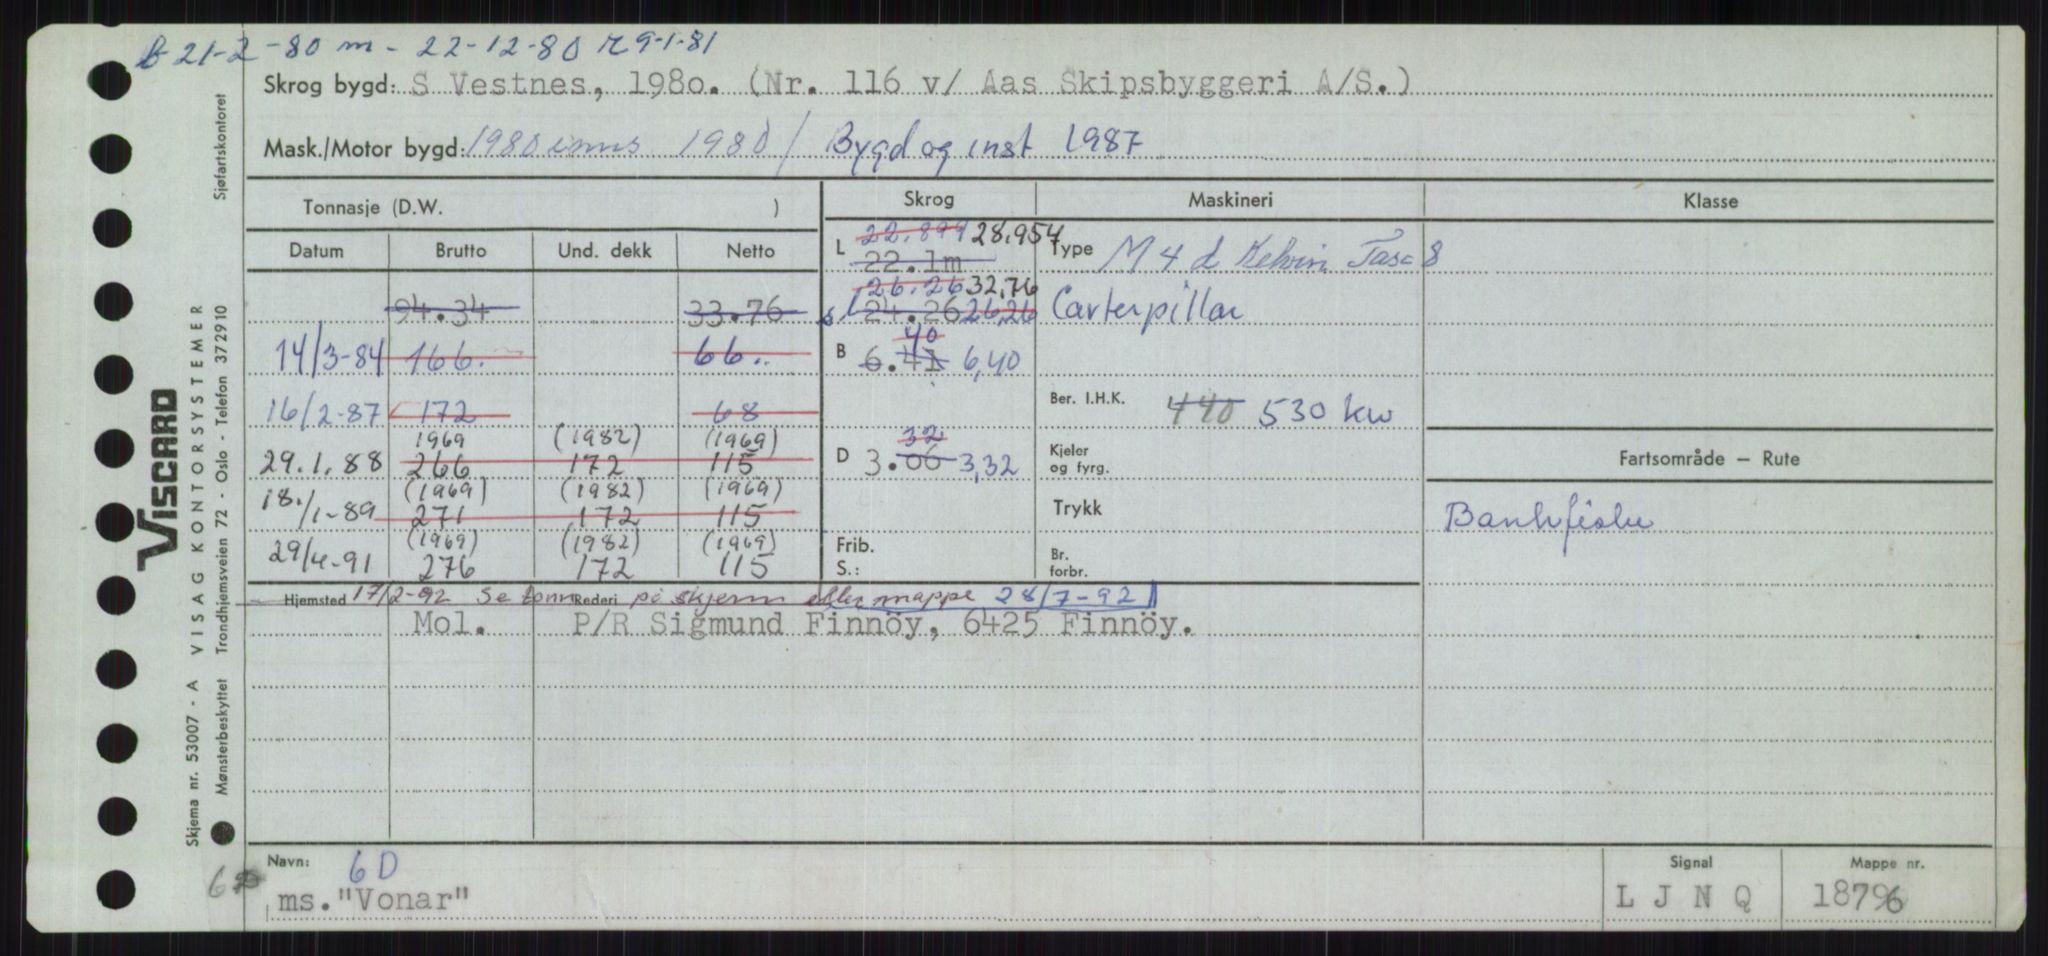 B 21-2-80 m- 22-12-80 R 9-1-81
Skrog bygd: S Vestnes, 1980. (Nr. 116 v/ Aas Skipsbyggeri A/S.)
Mask./Motor bygd: 1980 inns 1980 / Bygd og inst 1987
Tonnasje (D.W. )
Skrog Maskineri Klasse
Datum Brutto Und. dekk Netto
L 22.899 28.954
22.1m
Type M 4 d Kelvin Tasc 8
26.26 32,76
94.34 33.76 24.26 26,26 Carterpillar
40
14/3-84 166. 66.. B 6.41 6,40
16/2-87 172 68 Ber. I.H.K. 440 530 kw
1969 (1982) (1969) 32
29.1.88 266 172 115 D 3.06 3,32 Kjeler og fyrg. Fartsområde – Rute
(1969) (1982) (1969)
18./1-89 271 172 115 Trykk Bankfiske
(1969) (1982) (1969) Frib.
29/4-91 276 172 115 S.: Br. forbr.
Hjemsted 17/2-92 Se tonn Rederi på skjerm eller mappe 28/7-92
Mol. P/R Sigmund Finnöy, 6425 Finnöy.
Navn: 6D Signal Mappe nr.
ms. "Vonar" L J N Q 18796
Sjøfartskontoret
VISCARD
VISAG KONTORSYSTEMER
Trondhjemsveien 72 - Oslo - Telefon 372910
Skjema nr. 53007 - A
Mønsterbeskyttet